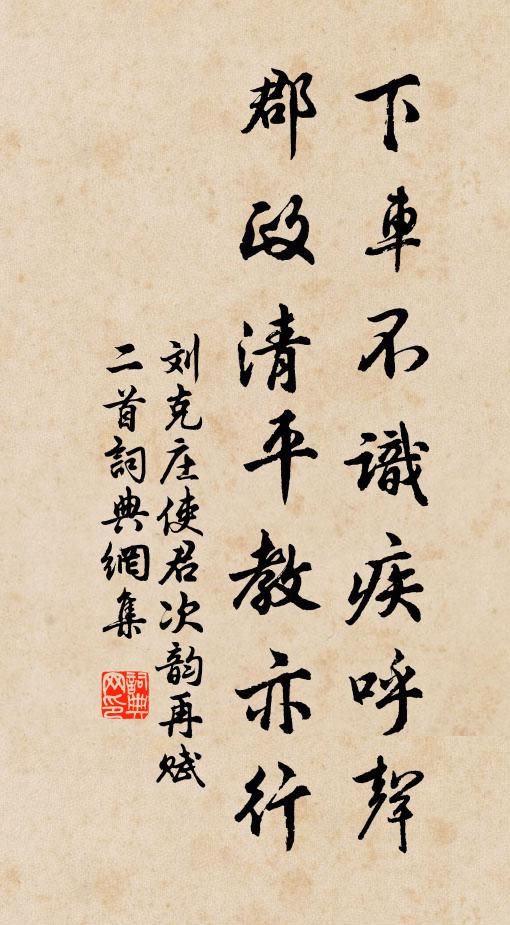 下車不識疾呼聲
郡政清平教亦行
刘克庄使君次韵再赋
二首詞典網集
詞典網印